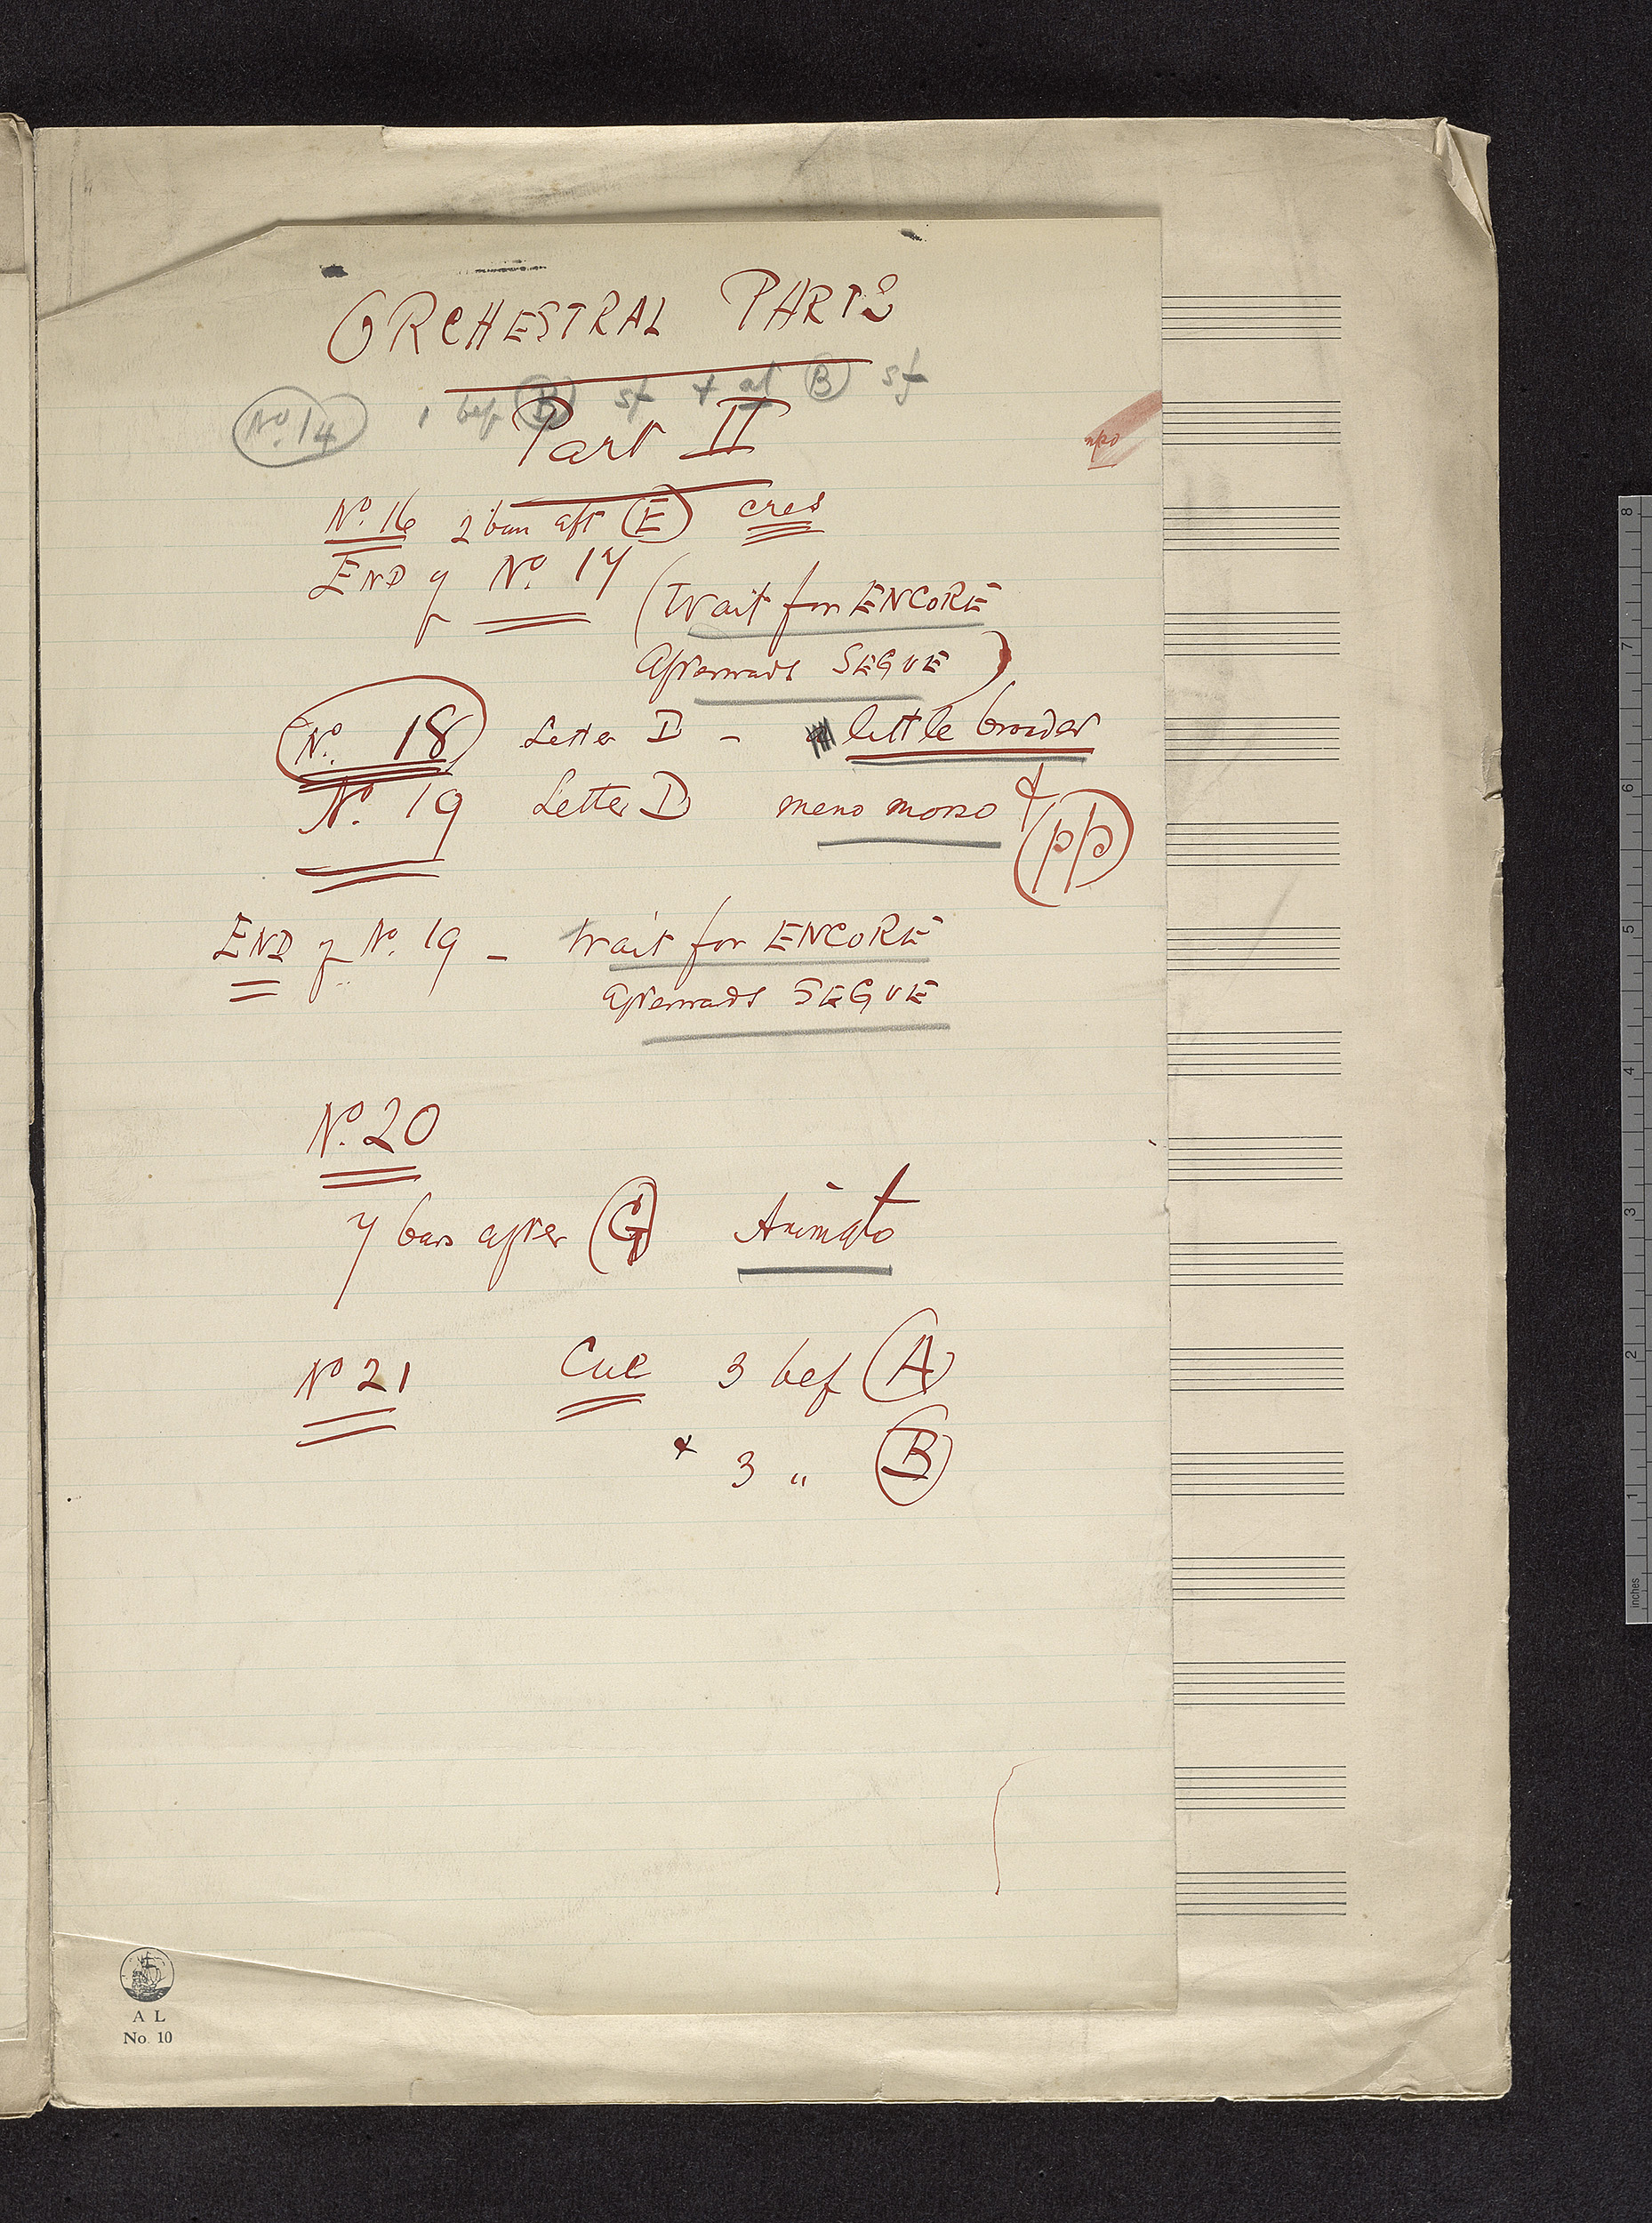 ORCHESTRAL PARTS
No. 14 1 bef B sf & at B sf
Part II
mpo
No. 16 2 bars aft E cres
END of No. 17
(Wait for ENCORE
Afterwards SEGUE)
No. 18 Letter D - little broader
No. 19 Letter D meno mosso & pp
END of No. 19 - Wait for ENCORE
afterwards SEGUE
No. 20
7 bars after G Animato
No 21 Cue 3 bef A
& 3 " B
A L
No. 10
8
7
6
5
4
3
2
1
inches